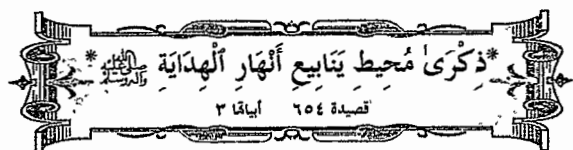 *ذِكْرَىٰ مُحِيطِ يَنَابِيعِ أَنْهَارِ ٱلْهِدَايَةِ ﷺ*
قصيدة ٦٥٤ أبياتها ٣